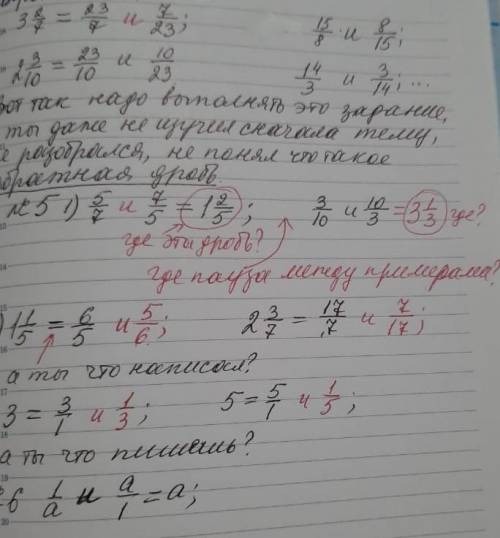 3 2/7 = 23/7 и 7/23; 15/8 и 8/15;
2 3/10 = 23/10 и 10/23 14/3 и 3/14; ...
Вот так надо выполнять это задание,
ты даже не изучил сначала тему,
не разобрался, не понял что такое
обратная дробь.
№5 1) 5/7 и 7/5 = 1 2/5; 3/10 и 10/3 = 3 1/3 где?
где эта дробь?
где пауза между примерами?
) 1 1/5 = 6/5 и 5/6; 2 3/7 = 17/7 и 7/17;
а ты что написал?
3 = 3/1 и 1/3; 5 = 5/1 и 1/5;
а ты что пишешь?
6 1/a и a/1 = a;